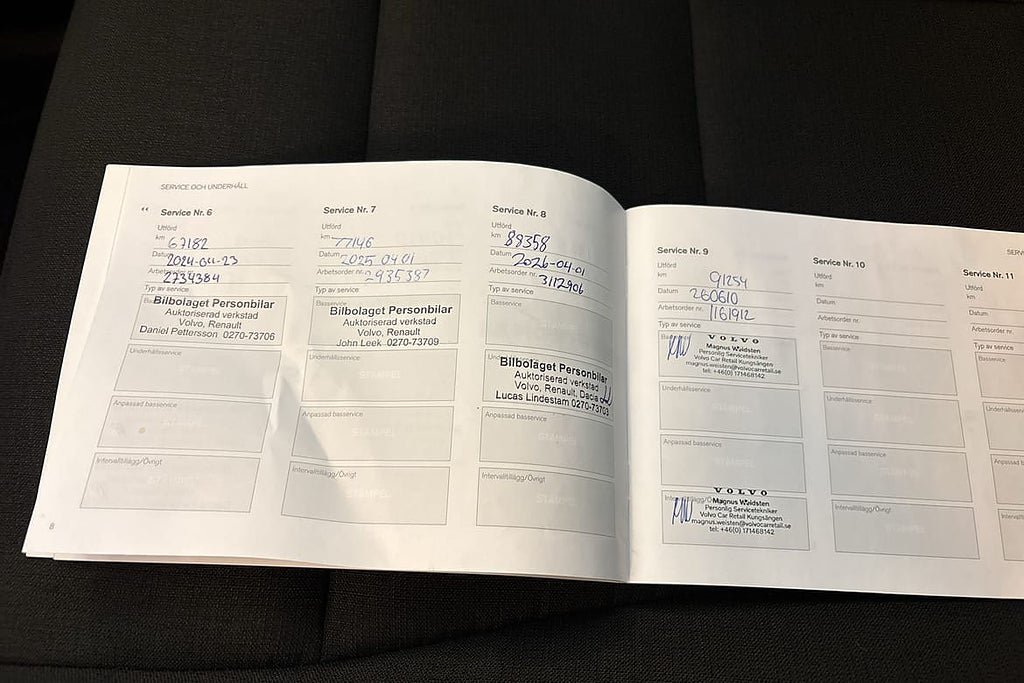 SERVICE OCH UNDERHÅLL
“ Service Nr. 6
Utförd
km 67182
Datum 2024-04-23
Arbetsorder nr. 2734384
Typ av service
Bilbolaget Personbilar
Auktoriserad verkstad
Volvo, Renault
Daniel Pettersson 0270-73706
Underhållsservice
STÄMPEL
Anpassad basservice
STÄMPEL
Intervalltillägg/Övrigt
STÄMPEL
8
Service Nr. 7
Utförd
km 77146
Datum 2025 04 01
Arbetsorder nr. 2935387
Typ av service
Basservice
Bilbolaget Personbilar
Auktoriserad verkstad
Volvo, Renault
John Leek 0270-73709
Underhållsservice
STÄMPEL
Anpassad basservice
STÄMPEL
Intervalltillägg/Övrigt
STÄMPEL
Service Nr. 8
Utförd
km 89358
Datum 2026-04-01
Arbetsorder nr. 3112906
Typ av service
Basservice
STÄMPEL
Bilbolaget Personbilar
Auktoriserad verkstad
Volvo, Renault, Dacia
Lucas Lindestam 0270-73703
Anpassad basservice
STÄMPEL
Intervalltillägg/Övrigt
STÄMPEL
Service Nr. 9
Utförd
km 91254
Datum 260610
Arbetsorder nr. 1161912
Typ av service
VOLVO
MW Magnus Weidsten
Personlig Servicetekniker
Volvo Car Retail Kungsängen
magnus.weisten@volvocarretail.se
tel: +46(0) 171468142
Underhållsservice
Anpassad basservice
VOLVO
MW Magnus Weidsten
Personlig Servicetekniker
Volvo Car Retail Kungsängen
magnus.weisten@volvocarretail.se
tel: +46(0) 171468142
Service Nr. 10
Utförd
km
Datum
Arbetsorder nr.
Typ av service
Basservice
Underhållsservice
Anpassad basservice
Intervalltillägg/Övrigt
SERV
Service Nr. 11
Utförd
km
Datum
Arbetsorder nr.
Typ av service
Basservice